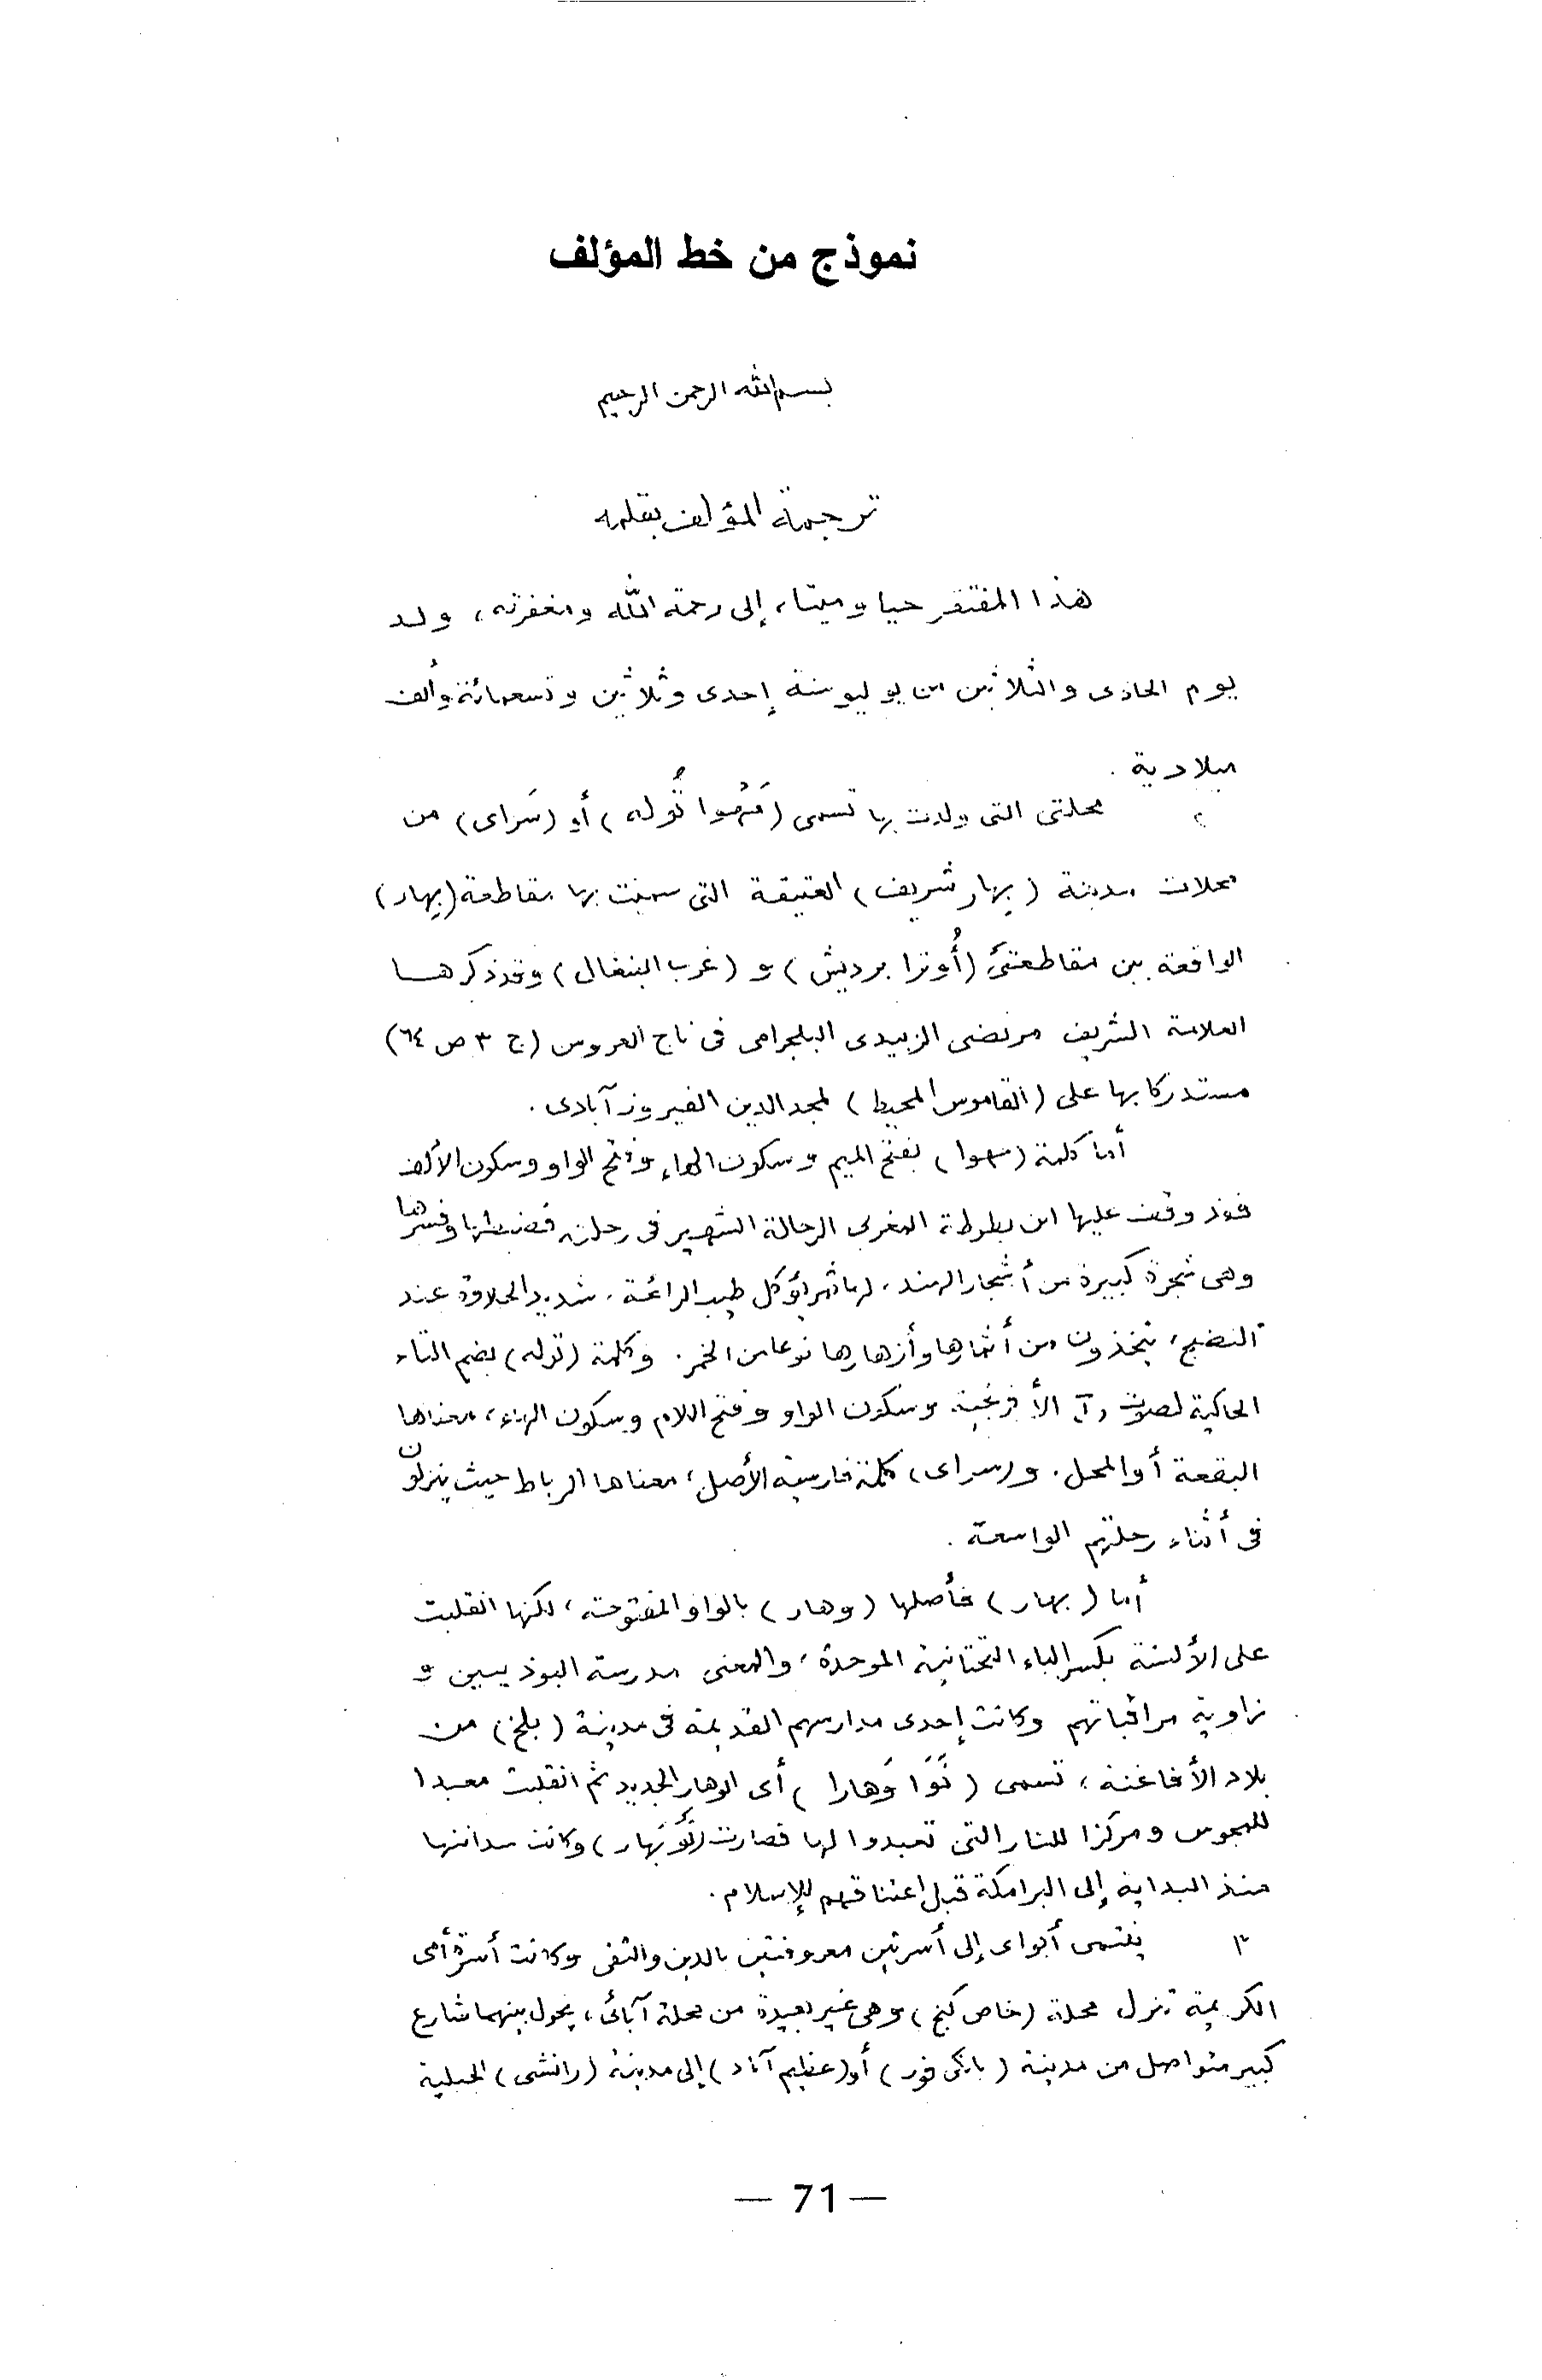 نموذج من خط المؤلف
بسم الله الرحمن الرحيم
ترجمة المؤلف بقلمه
هذا المفتقر حيا وميتا، إلى رحمة الله ومغفرته، ولد
يوم الحادى والثلاثين من يوليو سنة إحدى وثلاثين وتسعمائة وألف
ميلادية .
٢ محلتى التى ولدت بها تسمى (مَهْوا تُوله) أو (سَراى) من
محلات مدينة (بِهار شريف) العتيقة التى سميت بها مقاطعة (بِهار)
الواقعة بين مقاطعتَىْ (أُوترا برديش) و (غرب البنغال) وقد ذكرها
العلامة الشريف مرتضى الزبيدى البلجرامى فى تاج العروس (ج ٣ ص ٦٤)
مستدركا بها على (القاموس المحيط) لمجد الدين الفيروزآبادى .
أما كلمة (مهوا) بفتح الميم وسكون الهاء وفتح الواو وسكون الألف
فقد وقف عليها ابن بطوطة المغربى الرحالة الشهير فى رحلته فضبطها وفسرها
وهى شجرة كبيرة من أشجار الهند، لها ثمر يؤكل طيب الرائحة، شديد الحلاوة عند
النضج، يتخذون من أثمارها وأزهارها نوعا من الخمر. وكلمة (توله) بضم التاء
الحاكية لصوت الأفرنجية وسكون الواو وفتح اللام وسكون الهاء، معناها
البقعة أو المحل. و(سراى) كلمة فارسية الأصل، معناها الرباط حيث ينزلون
فى أثناء رحلتهم الواسعة .
أما (بهار) فأصلها (وهار) بالواو المفتوحة، لكنها انقلبت
على الألسنة بكسر الباء التحتانية الموحدة، والمعنى مدرسة البوذيسين و
زاوية مراقباتهم وكانت إحدى مدارسهم القديمة فى مدينة (بلخ) من
بلاد الأفاغنة، تسمى (نَوَا وَهارا) أى الوهار الجديد ثم انقلبت معبدا
للمجوس ومركزا للنار التى تعبدوا لها فصارت (نَوْبَهار) وكانت سدانتها
منذ البداية إلى البرامكة قبل اعتناقهم للإسلام.
٣ ينتمى أبواى إلى أسرتين معروفتين بالدين والتقى وكانت أسرة أمى
الكريمة تنزل محلة (خاص كنج) وهى غير بعيدة من محلة آبائى، يحول بينهما شارع
كبير متواصل من مدينة (بانكى فور) أو (عظيم آباد) إلى مدينة (رانشى) الجبلية
— 71 —